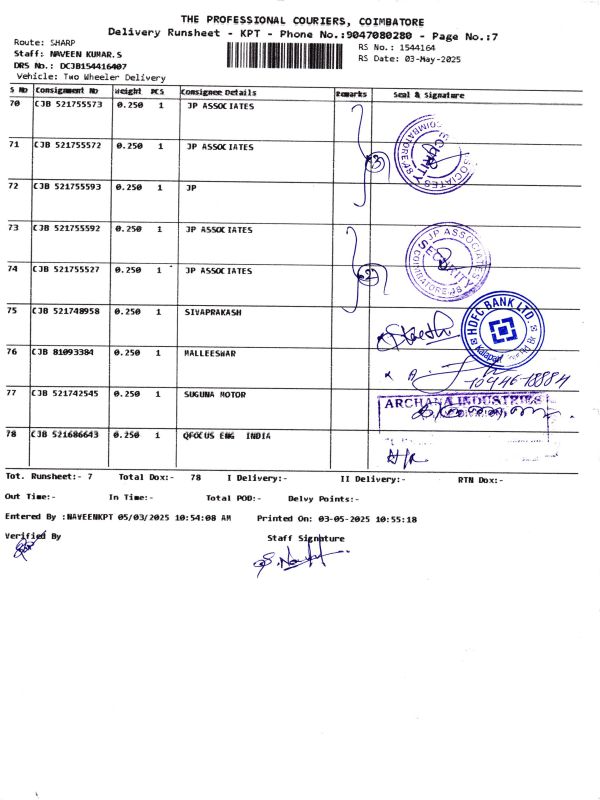 THE PROFESSIONAL COURIERS, COIMBATORE
Delivery Runsheet - KPT - Phone No.:9047080280 - Page No.:7
Route: SHARP
RS No.: 1544164
Staff: NAVEEN KUMAR.S
RS Date: 03-May-2025
DRS No.: DCJB154416407
Vehicle: Two Wheeler Delivery
S No Consignment No Weight PCS Consignee Details Remarks Seal & Signature
70 CJB 521755573 0.250 1 JP ASSOCIATES
71 CJB 521755572 0.250 1 JP ASSOCIATES
3
ASSOCIATES
SECURITY
COIMBATORE
72 CJB 521755593 0.250 1 JP
73 CJB 521755592 0.250 1 JP ASSOCIATES
JP ASSOCIATES
SECURITY
COIMBATORE
74 CJB 521755527 0.250 1 JP ASSOCIATES
2
75 CJB 521748958 0.250 1 SIVAPRAKASH
HDFC BANK LTD.
76 CJB 81093384 0.250 1 MALLEESWAR
77 CJB 521742545 0.250 1 SUGUNA MOTOR
ARCHANA INDUSTRIES
78 CJB 521686643 0.250 1 QFOCUS ENG INDIA
Tot. Runsheet:- 7 Total Dox:- 78 I Delivery:- II Delivery:- RTN Dox:-
Out Time:- In Time:- Total POD:- Delvy Points:-
Entered By :NAVEENKPT 05/03/2025 10:54:08 AM Printed On: 03-05-2025 10:55:18
Verified By Staff Signature